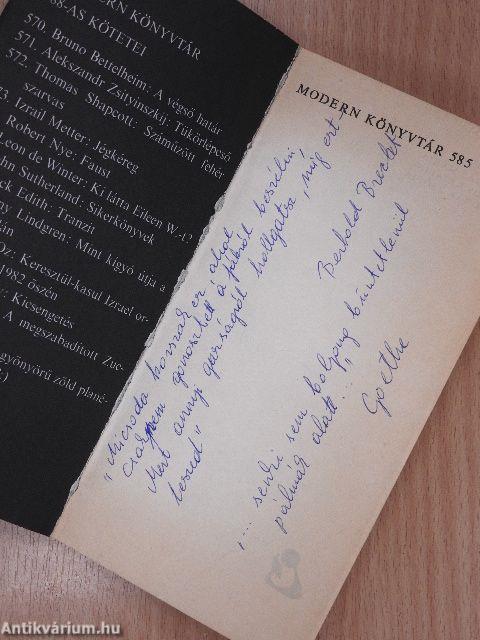 ERN KÖNYVTÁR
88-AS KÖTETEI
570. Bruno Bettelheim: A végső határ
571. Alekszandr Zsityinszkij: Tükörlépcső
572. Thomas Shapcott: Száműzött fehér
szarvas
73. Izrail Metter: Jégkéreg
Robert Nye: Faust
Leon de Winter: Ki látta Eileen W.-t?
hn Sutherland: Sikerkönyvek
ck Edith: Tranzit
ny Lindgren: Mint kígyó útja a
án
Oz: Keresztül-kasul Izrael or-
1982 őszén
Kicsengetés
A megszabadított Zuc-
gyönyörű zöld plané-
MODERN KÖNYVTÁR 585
„Micsoda korszak ez, ahol
csaknem gonosztett a fákról beszélni
Mert annyi gazságról hallgatsz, míg ezt
teszed"
Berthold Brecht
„... senki sem bolyong büntetlenül
pálmák alatt..."
Goethe
Antikvárium.hu